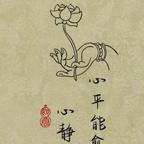 心平能愈
心静